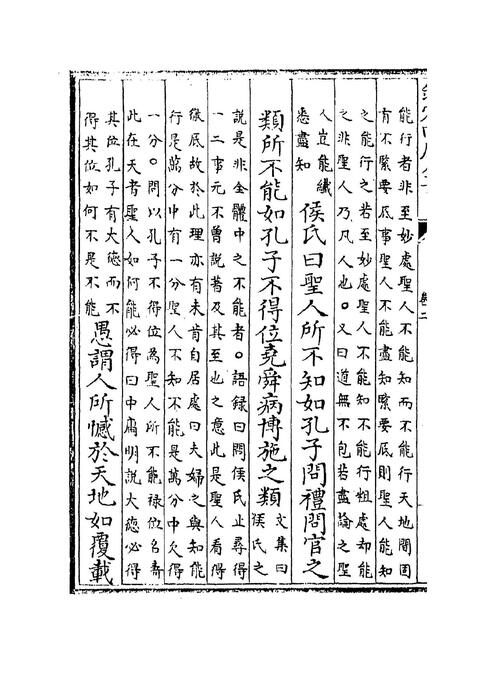 能行者非至妙處聖人不能知而不能行天地間固
有不緊要底事聖人不能盡知緊要底則聖人能知
之能行之若至妙處聖人不能知不能行粗處却能
之非聖人乃凡人也。又曰道無不包若盡論之聖
人豈能纖
悉盡知
侯氏曰聖人所不知如孔子問禮問官之
類所不能如孔子不得位堯舜病博施之類
文集曰
侯氏之
說是非全體中之不能者。語錄曰問侯氏止尋得
一二事元不曽說著及其至也之意此是聖人看得
徹底故於此理亦有未肯自居處曰夫婦之與知能
行是萬分中有一分聖人不知不能是萬分中欠得
一分。問以孔子不得位為聖人所不能祿位名壽
此在天者聖人如何能必得曰中庸明說大德必得
其位孔子有大德而不
得其位如何不是不能
愚謂人所憾於天地如覆載